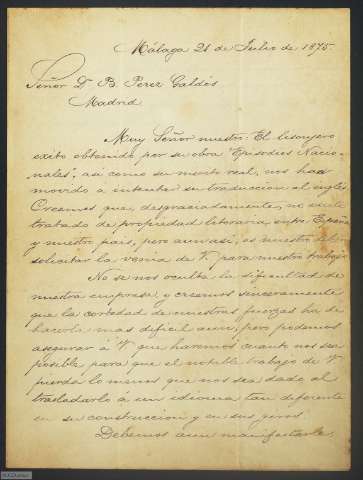 Málaga 21 de Julio de 1875.
Señor Dn B. Perez Galdós
Madrid
Muy Señor nuestro: El lisonjero
exito obtenido por su obra "Episodios Nacio-
nales", asi como su merito real, nos han
movido a intentar su traduccion al inglés.
Creemos que, desgraciadamente, no existe
tratado de propiedad literaria entre España
y nuestro pais, pero aun asi, es nuestro deber
solicitar la venia de V. para nuestro trabajo.
No se nos oculta la dificultad de
nuestra empresa, y creemos sinceramente
que la cortedad de nuestras fuerzas ha de
hacerla mas dificil aun, pero podemos
asegurar á V. que haremos cuanto nos sea
posible para que el notable trabajo de V.
pierda lo menos que nos sea dado al
trasladarlo á un idioma tan diferente
en su construccion y en sus giros.
Debemos aun manifestarle